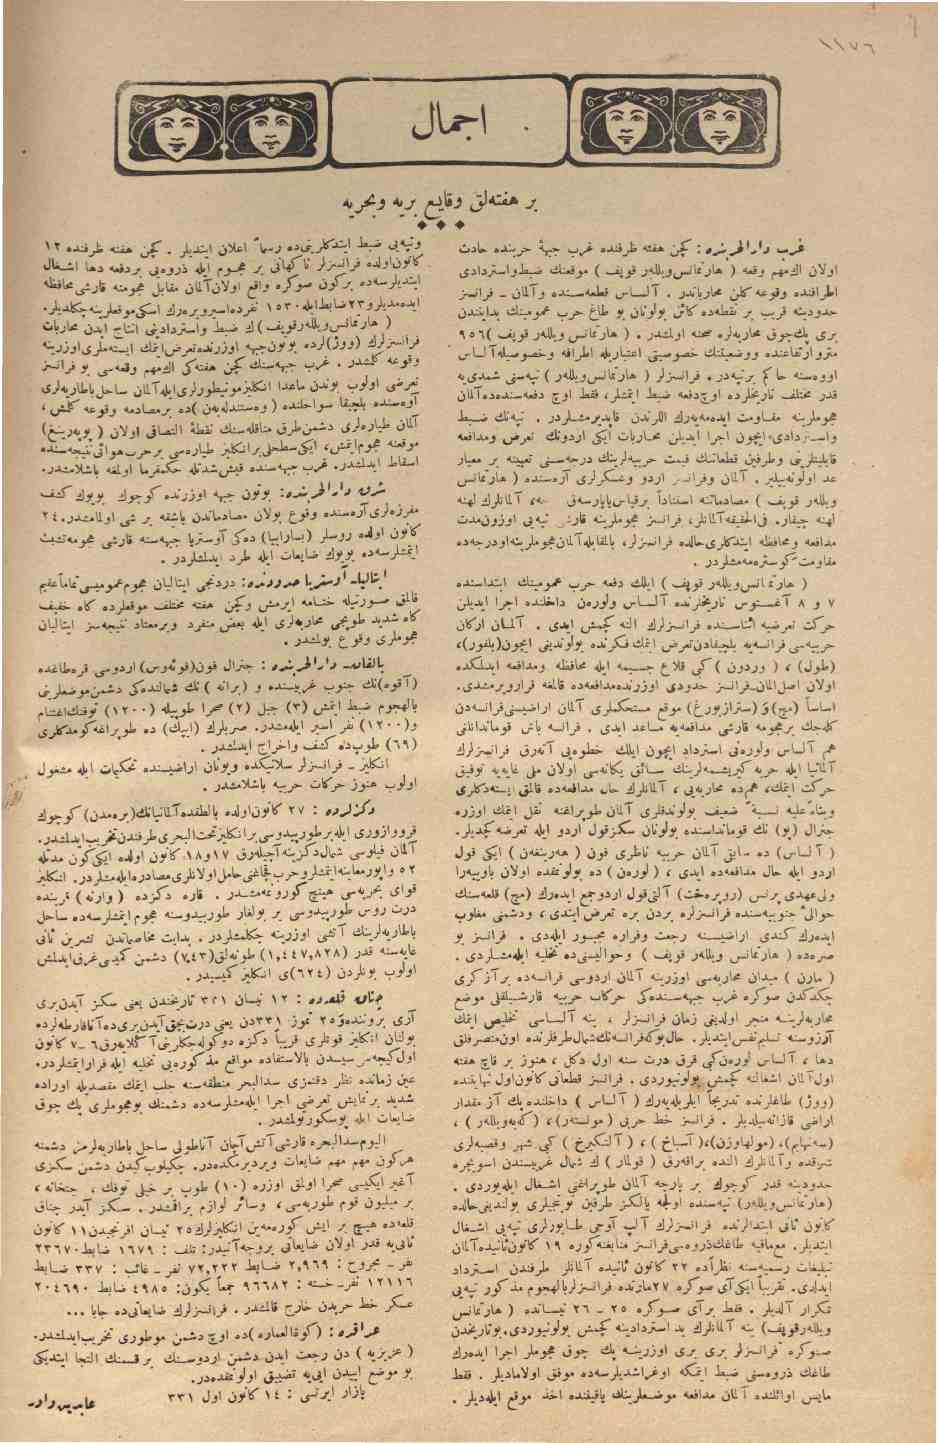 ١١٧٦
اجمال
بر هفته‌لق وقایع بریه وبحریه
غرب دارالحربنده : كچن هفته ظرفنده غرب جبهۀ حربنده حادث
اولان اك‌مهم وقعه ( هارتمانس‌ویللەر قوپف ) موقعنك ضبط‌واستردادی
اطرافنده وقوعه كلن محارباتدر . آلساس قطعه‌سنده وآلمان ـ فرانسز
حدودینه قریب بر نقطه‌ده كائن بولونان بو طاغ حرب عمومینك بدایتندن
بری پك‌چوق محاربه‌لره صحنه اولمشدر . ( هارتمانس ویللەر قوپف ) ٩٥٦
مترو ارتفاعنده ووضعیتنك خصوصیتی اعتباریله اطرافه وخصوصیله آلساس
اووه‌سنه حاكم برتپه‌در . فرانسزلر ( هارتمانس‌ویللەر ) تپه‌سنی شمدی‌یه
قدر مختلف تاریخلرده اوچ‌دفعه ضبط ایتمشلر ، فقط اوچ دفعه‌سنده‌ده آلمان
هجوملرینه مقاومت ایده‌مه‌یه‌رك اللرندن قاپدیرمشلردر . تپه‌نك ضبط
واستردادی ایچون اجرا ایدیلن محاربات ایكی اردونك تعرض ومدافعه
قابلیتلرینی وطرفین قطعاتنك قیمت حربیه‌لرینك درجه‌سنی تعیینه بر معیار
عد اولونه‌بیلیر . آلمان وفرانسز اردو وعسكرلری آره‌سنده ( هارتمانس
ویللەر قوپف ) مصادماتنه استناداً برقیاس یاپارسه‌ق ، آلمانلرك لهنه
لهنه چیقار . فی‌الحقیقه آلمانلر ، فرانسز هجوملرینه قارشی تپه‌یی اوزون‌مدت
مدافعه ومحافظه ایتدكلری‌حالده فرانسزلر ، بالمقابله آلمان هجوملرینه‌اودرجه‌ده
مقاومت كوستره‌مه‌مشلردر .
( هارتمانس‌ویللەر قوپف ) ایلك دفعه حرب عمومینك ابتداسنده
٧ و ٨ آغستوس تاریخلرنده آلساس ولورەن داخلنده اجرا ایدیلن
حركت تعرضیه اثناسنده فرانسزلرك النه كچمش ایدی . آلمان اركان
حربیه‌سی فرانسه‌یه بلچیقادن‌تعرض ایتمك فكرنده بولوندیغی ایچون(بلفور)،
(طول) ، ( وردون ) كبی قلاع جسیمه ایله محافظه ومدافعه ایدلكده
اولان اصل‌آلمان ـ فرانسز حدودی اوزرنده‌مدافعه‌ده قالمغه قرارویرمشدی.
اساساً (مچ)و (سترازبورغ) موقع مستحكملری آلمان اراضیسنی‌فرانسه‌دن
كله‌جك برهجومه قارشی مدافعه‌یه مساعد ایدی . فرانسه باش قومانداننی
هم آلساس ولورەنی استرداد ایچون ایلك خطوه‌یی آته‌رق فرانسزلرك
آلمانیا ایله حربه كیریشمه‌لرینك سائق یكانه‌سی اولان ملی غایه‌یه توفیق
حركت ایتمك، هم‌ده محاربه‌یی ، آلمانلرك حال مدافعه‌ده قالمق ایسته‌دكلری
وبناءً علیه نسبةً ضعیف بولوندقلری آلمان طوپراغنه نقل ایتمك اوزره
جنرال (پو) نك قومانداسنده بولونان سكزقول اردو ایله تعرضه‌كچدیلر.
( آلساس ) ده سابق آلمان حربیه ناظری فون ( هەرینغەن ) ایكی قول
اردو ایله حال مدافعه‌ده ایدی ، ( لورەن ) ده بولونمقده اولان باویەرا
ولی‌عهدی پرنس (روپرەخت) آلتی‌قول اردوجمع ایده‌رك (مچ) قلعه‌سنك
حوالی‌ٔ جنوبیه‌سنده فرانسزلره بردن بره تعرض ایتدی ، ودشمنی مغلوب
ایده‌رك كندی اراضیسنه رجعت وفراره مجبور ایله‌دی . فرانسز بو
صره‌ده ( هارتمانس ویللەر قوپف ) وحوالیسنی‌ده تخلیه ایله‌مشلردی .
( مارن ) میدان محاربه‌سی اوزرینه آلمان اردوسی فرانسه‌ده برآز كری
چكلدكدن صوكره غرب جبهه‌سنده‌كی حركات حربیه قارشیلقلی موضع
محاربه‌لرینه منجر اولدیغی زمان فرانسزلر ، ینه آلساسی تخلیص ایتمك
آرزوسنه تسلیم‌نفس‌ایتدیلر. حال‌بوكه‌فرانسه‌نك‌شمال‌طرفلرنده اون‌متصرفلق
دها ، آلساس لورەن‌كبی قرق درت سنه اول دكل ، هنوز بر قاچ هفته
اول آلمان اشغالنه كچمش بولونیوردی . فرانسز قطعاتی كانون‌اول نهایتنده
(ووژ) طاغلرنده تدریجاً ایلریله‌یه‌رك ( آلساس ) داخلنده پك آز مقدار
اراضی قازانه‌بیلدیلر . فرانسز خط حربی ( مونستەر) ،
(مولهاوزن)،( آسباخ ) ، ( آلتكیرخ ) كبی شهر وقصبه‌لری
شرقده وآلمانلرك النده براقه‌رق ( قولمار ) ك شمال غربیسندن اسویچره
حدودینه قدر كوچوك بر پارچه آلمان طوپراغنی اشغال ایله‌یوردی .
كانون ثانی ابتدالرنده فرانسزلرك آلپ آوجی طابورلری تپه‌یی اشغال
ایتدیلر . مع‌مافیه طاغك‌ذروه‌سی‌فرانسز منابعنه‌كوره ١٩ كانون‌ثانیده‌آلمان
تبلیغات رسمیه‌سنه نظراًده ٢٢ كانون ثانیده آلمانلر طرفندن استرداد
ایدلدی. تقریباً ایكی‌آی صوكره ٢٧مارتده فرانسزلربالهجوم مذكور تپه‌یی
تكرار آلدیلر . فقط برآی صوكره ٢٥ ـ ٢٦ نیسانده ( هارتمانس
ویللەرقوپف) ینه آلمانلرك ید استردادینه كچمش بولونیوردی.بوتاریخدن
صوكره فرانسزلر بری بری اوزرینه پك چوق هجوملر اجرا ایده‌رك
طاغك ذروه‌سنی ضبط ایتمكه اوغراشدیلرسه‌ده موفق اولامادیلر . فقط
مایس اوائلنده آلمان مدافعه موضعلرینك یاقیننده اخذ موقع ایله‌دیلر .
وتپه‌یی ضبط ایتدكلرینی‌ده رسماً اعلان ایتدیلر . كچن هفته ظرفنده ١٢
كانون‌اولده فرانسزلر ناكهانی بر هجوم ایله ذروه‌یی بردفعه دها اشغال
ایتدیلرسه‌ده بركون صوكره واقع اولان‌آلمان مقابل هجومنه قارشی‌محافظه
ایده‌مدیلر و٢٣ضابط‌ایله١٥٣٠ نفرده‌اسیرویره‌رك اسكی‌موقعلرینه‌چكلدیلر.
( هارتمانس‌ویللەرقوپف)ك ضبط واستردادینی انتاج ایدن محاربات
فرانسزلرك (ووژ)لرده بوتون‌جبهه اوزرنده‌تعرض‌ایتمك ایسته‌ملری‌اوزرینه
وقوعه كلمشدر . غرب جبهه‌سنك كچن هفته‌كی اك‌مهم وقعه‌سی بو فرانسز
تعرضی اولوب بوندن ماعدا انكلیزمونیطورلری‌ایله‌آلمان ساحل‌باطاریه‌لری
آره‌سنده بلچیقا سواحلنده (وەستندەیەن )ده برمصادمه وقوعه كلمش ،
آلمان طیاره‌لری دشمن‌طرق مناقله‌سنك نقطۀ التصاقی اولان ( پوپەرینغ)
موقعنه هجوم‌ایتمش، ایكی‌سطحلی‌برانكلیز طیاره‌سی برحرب‌هوائی‌نتیجه‌سنده
اسقاط ایدلمشدر. غرب جبهه‌سنده قیش‌شدتله حكمفرما اولمغه باشلامشدر.
شرق دارالحربنده: بوتون جبهه اوزرنده كوچوك بویوك كشف
مفرزه‌لری آره‌سنده وقوع بولان مصادماتدن باشقه بر شی اولمامشدر.٢٤
كانون اولده روسلر (بسارابیا) ده‌كی آوستریا جبهه‌سنه قارشی هجومه‌تشبث
ایتمشلرسه‌ده بویوك ضایعات ایله طرد ایدلمشلردر .
ایتالیا ـ آوستریا حدودنده: دردنجی ایتالیان هجوم‌عمومیسی‌تماماًعقیم
قالمق صورتیله ختامه ایرمش وكچن هفته مختلف موقعلرده كاه خفیف
كاه شدید طوپجی محاربه‌لری ایله بعض منفرد وبرمعتاد نتیجه‌سز ایتالیان
هجوملری وقوع بولمشدر .
بالقان ـ دارالحربنده : جنرال فون(قوئەوس) اردوسی قره‌طاغده
(آقوه)نك جنوب غربیسنده و ( برانه )نك شمالنده‌كی دشمن‌موضعلرینی
بالهجوم ضبط ایتمش (٣) جبل (٢) صحرا طوپیله (١٢٠٠) توفنك‌اغتنام
و(١٢٠٠) نفر اسیر ایله‌مشدر. صربلرك (ایپك) ده طوپراغه‌كومدكلری
(٦٩) طوپ‌ده كشف واخراج ایدلمشدر .
انكلیز ـ فرانسزلر سلانیكده ویونان اراضیسنده تحكیمات ایله مشغول
اولوب هنوز حركات حربیه باشلامشدر .
دكزلرده : ٢٧ كانون‌اولده بالطقده‌آلمانیانك(برەمەن) كوچوك
قرووازوری ایله‌برطورپیدوسی‌برانكلیزتحت‌البحری‌طرفندن‌تخریب‌ایدلمشدر.
آلمان فیلوسی شمال‌دكزینه‌آچیله‌رق ١٧و١٨ كانون اولده ایكی‌كون مدتله
٥٢ واپورمعاینه‌ایتمشلروحرب‌قاچاغنی‌حامل‌اولانلری‌مصادره‌ایله‌مشلردر . انكلیز
قوای بحریه‌سی هیچ‌كورونمه‌مشدر . قاره دكزده ( وارنه) قربنده
درت روس طورپیدوسی بر بولغار طورپیدوسنه هجوم ایتمشلرسه‌ده ساحل
باطاریه‌لرینك آتشی اوزرینه چكلمشلردر . بدایت مخاصماتدن تشرین ثانی
غایه‌سنه قدر (١,٤٤٧,٨٢٨) طونه‌لق(٧,٤٣) دشمن كمیسی‌غرق‌ایدلمش
اولوب بونلردن (٦٢٤)ی انكلیز كمیسیدر .
چناق قلعه‌ده : ١٢ نیسان ٣٣١ تاریخندن یعنی سكز آیدن‌بری
آری بروننده‌و٢٥ تموز ٣٣١دن یعنی درت‌بچق‌آیدن‌بری‌ده‌آنافارطه‌لرده
بولنان انكلیز قوتلری قریباً دكزه دوكوله‌جكلرینی‌آكلایه‌رق٦ ـ ٧ كانون
اول‌كیجه‌سی سیسدن بالاستفاده مواقع مذكوره‌یی تخلیه ایله فرارایتمشلردر.
عین زمانده نظر دقتمزی سدالبحر منطقه‌سنه جلب ایتمك مقصدیله اوراده
شدید برنمایش تعرضی اجرا ایله‌مشلرسه‌ده دشمنك بوهجوملری پك چوق
ضایعات ایله پوسكورتولمشدر .
الیوم‌سدالبحره قارشی‌آتش‌آچان آناطولی ساحل باطاریه‌لرمز دشمنه
هركون مهم مهم ضایعات ویردیرمكده‌در. چكیلوب‌كیدن دشمن سكزی
آغیر ایكیسی صحرا اولمق اوزره (١٠) طوپ بر خیلی توفنك ، جبخانه ،
بر میلیون قوم طوربه‌سی ، وسائر لوازم براقمشدر. سكز آیدر چناق
قلعه‌ده هیچ بر ایش كوره‌مه‌ین انكلیزلرك٢٥ نیسان افرنجیدن١١ كانون
ثانی‌یه قدر اولان ضایعاتی بروجه‌آتیدر: تلف : ١٦٧٩ ضابط٢٣٦٧٠
نفر ـ مجروح : ٢,٩٦٩ ضابط ٧٢,٢٢٢ نفر ـ غائب : ٣٣٧ ضابط
١٢١١٦ نفر ـ خسته : ٩٦٦٨٢ جمعاً یكون: ٤٩٨٥ ضابط ٢٠٤٦٩٠
عسكر خط حربدن خارج قالمشدر . فرانسزلرك ضایعاتی‌ده جابا ...
عراقده : (كوةالعماره)ده اوچ دشمن موطوری تخریب‌ایدلمشدر.
( عزیزیه ) دن رجعت ایدن دشمن اردوسنك برقسمنك التجا ایتدیكی
بو موضع آییدن آیی‌یه تضییق اولونمقده‌در.
بازار ایرتسی : ١٤ كانون اول ٣٣١
عابدین داور